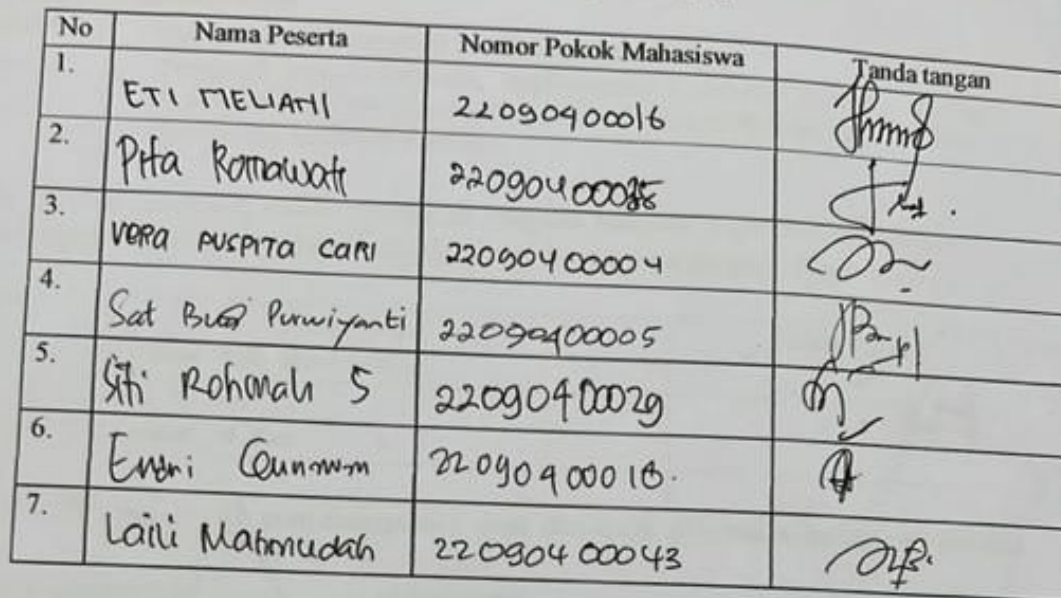 No Nama Peserta Nomor Pokok Mahasiswa Tanda tangan
1. ETI MELIANI 22090400016
2. Pita Romawati
3. VERA PUSPITA CARI 22090400004
4. Sat Budi Purwiyanti 22090400005
5. Siti Rohmah S 22090400029
6. 
7. Laili Mahmudah 22090400043